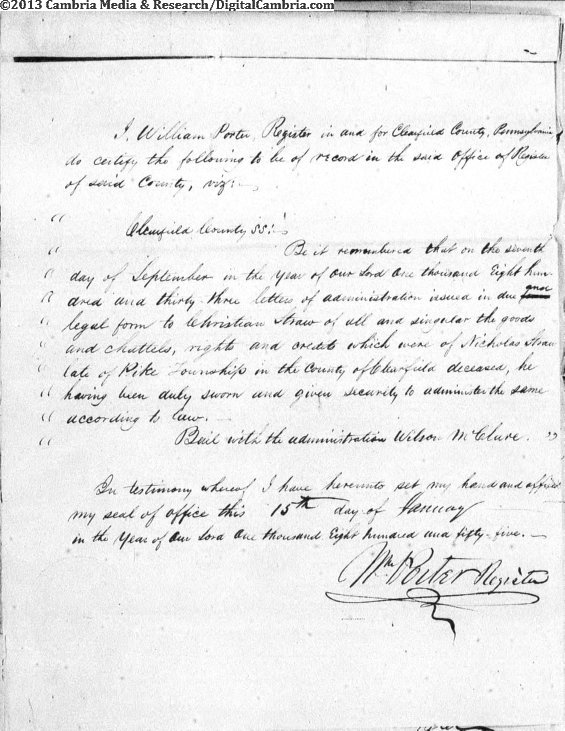 ©2013 Cambria Media & Research/DigitalCambria.com
I, William Porter, Register in and for Clearfield County, Pennsylvania
do certify the following to be of record in the said Office of Register
of said County, viz:
Clearfield County SS:
Be it remembered that on the seventh
day of September in the Year of Our Lord One thousand Eight hun
dred and thirty-three letters of administration issued in due and
legal form to Christian Straw of all and singular the goods
and chattels, rights and credits which were of Nicholas Straw
late of Pike Township in the County of Clearfield deceased, he
having been duly sworn and given security to administer the same
according to law.
Bail with the administration Wilson McClure. "
In testimony whereof I have hereunto set my hand and affixed
my seal of office this 15th day of January
in the Year of Our Lord One thousand Eight hundred and fifty-five.
Wm Porter Register